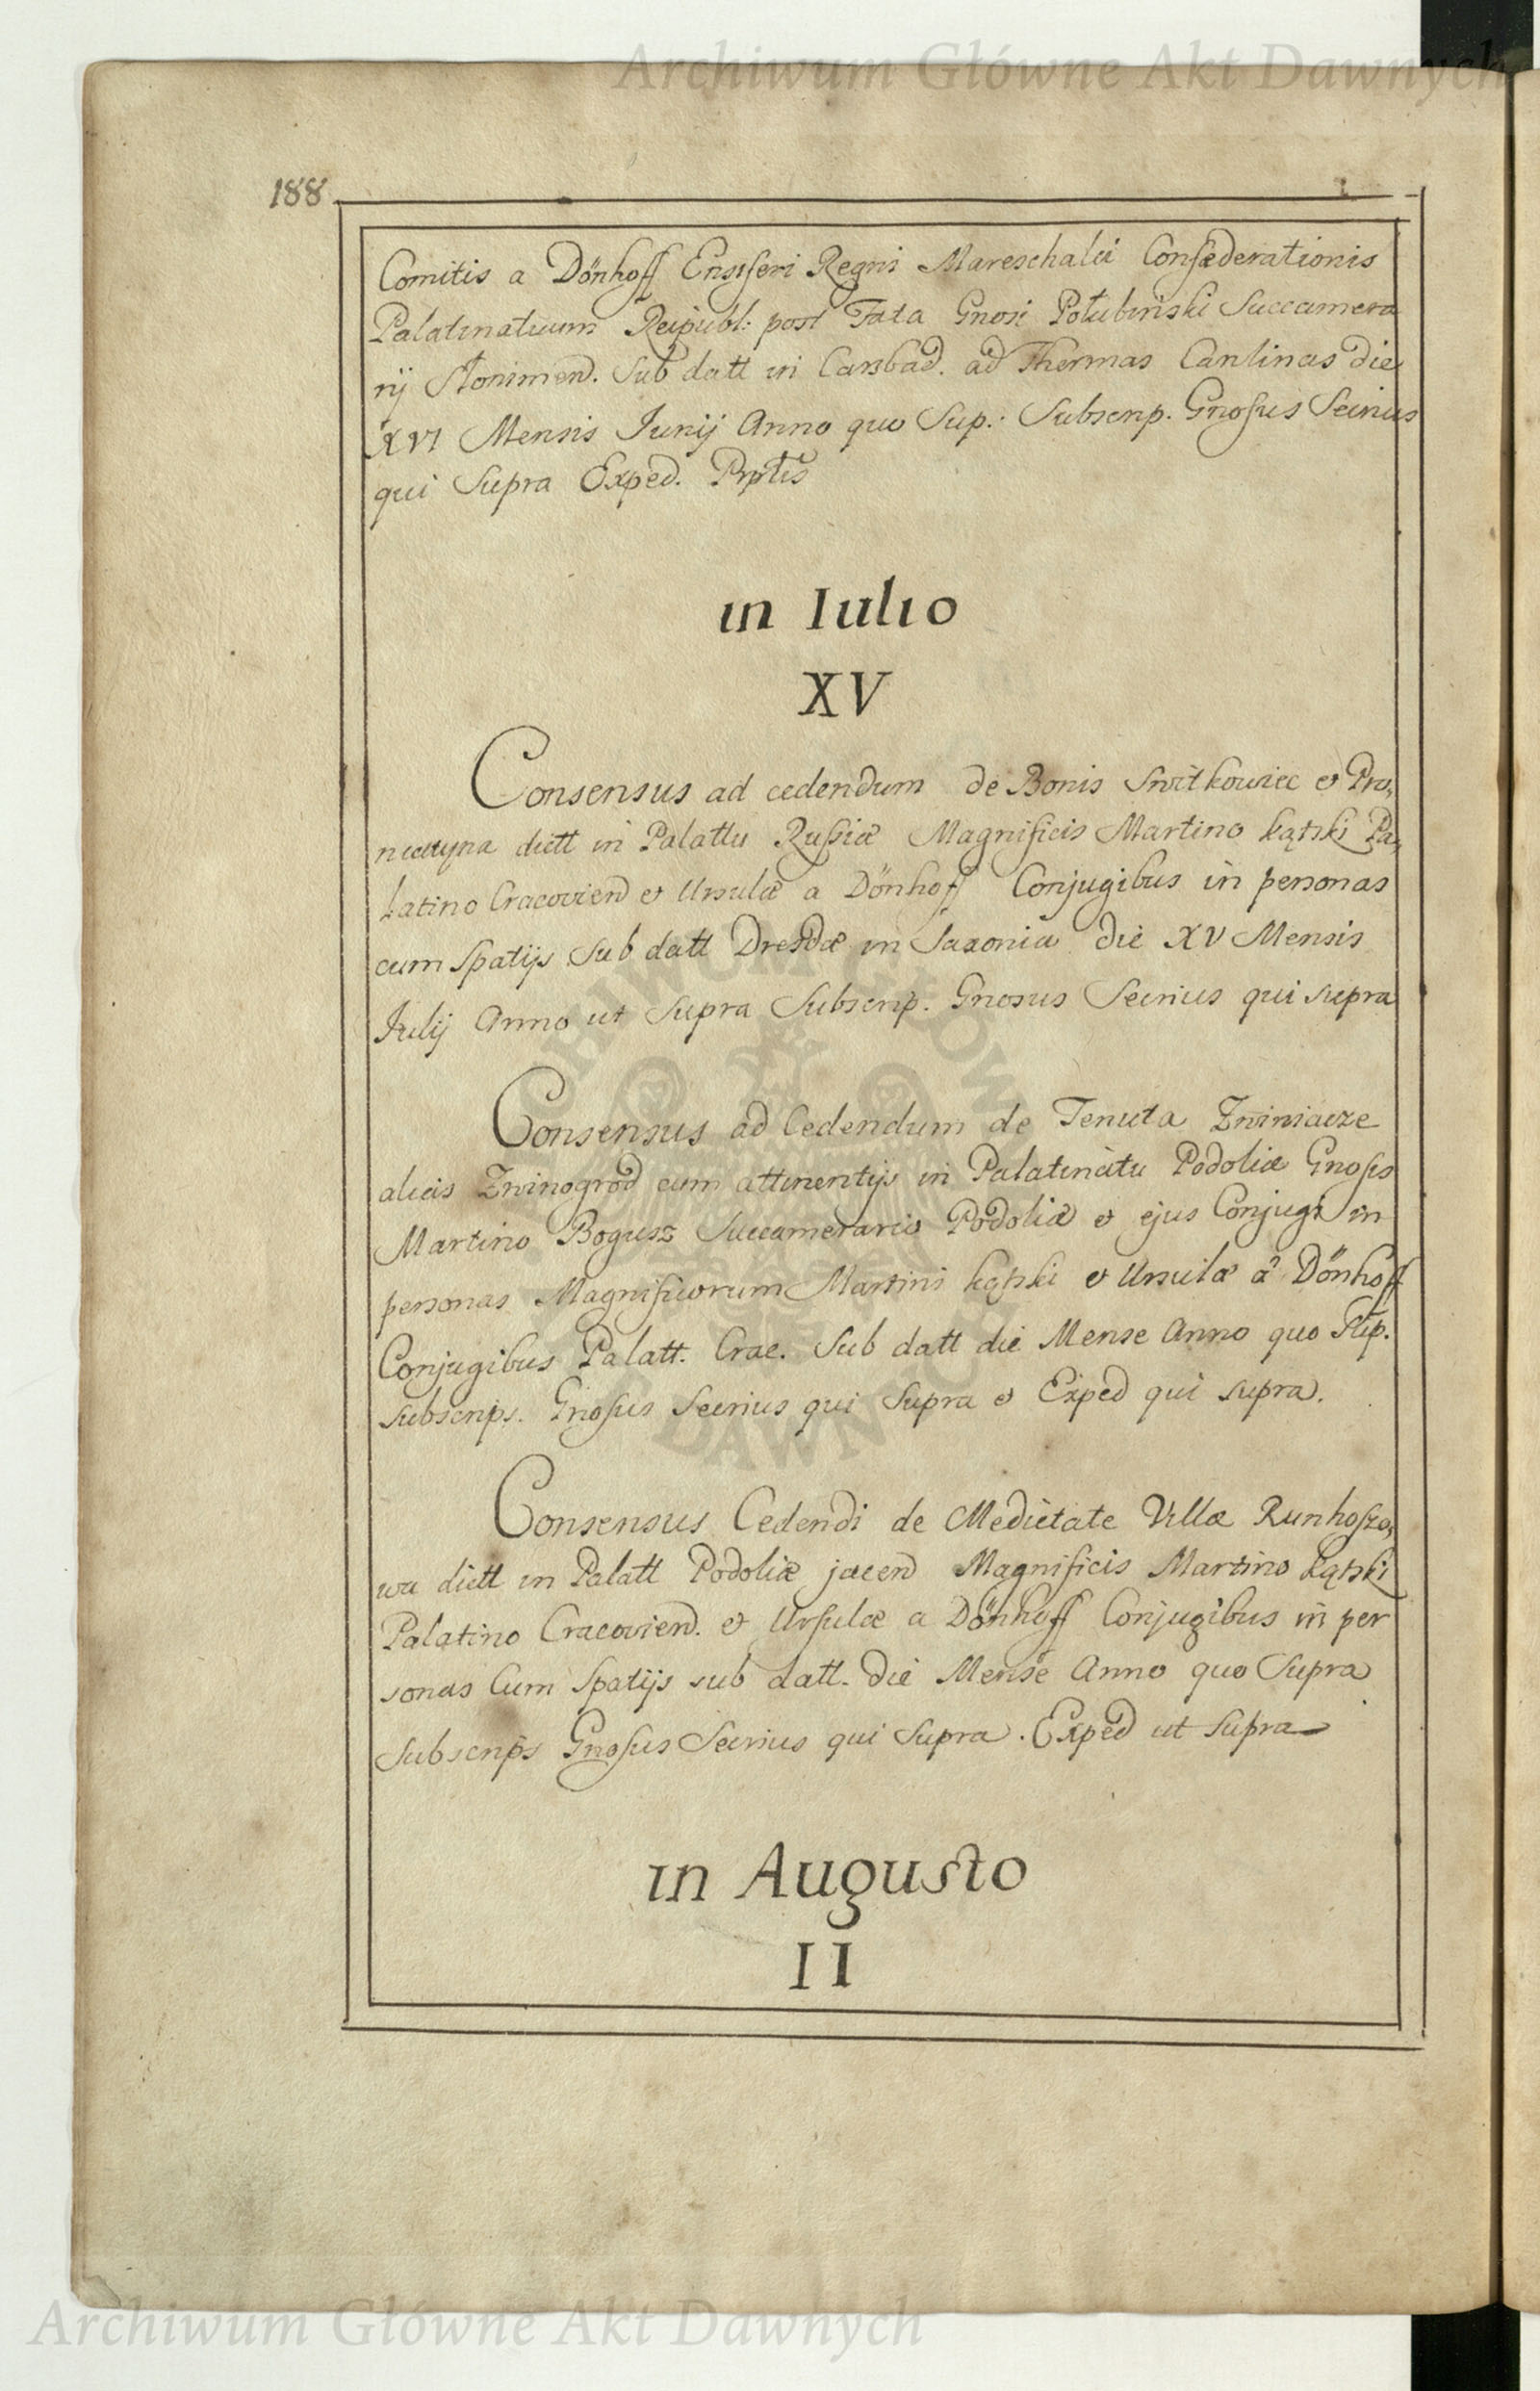 Archiwum Główne Akt Dawnych
188
Comitis a Dönhoff Ensiferi Regni Mareschalci Confæderationis
Palatinatuum Reipubl: post Fata Gnosi Połubiński Succamera
rij Słonimen. Sub datt in Carsbad. ad Thermas Carolinas die
XVI Mensis Junij Anno quo Sup: Subscrip. Gnosus Secrius
qui Supra Exped. Prptis
in Iulio
XV
Consensus ad cedendum de Bonis Switkowiec et Pro,
niatyna dictt in Palattu Russiæ Magnificis Martino Kątski Pa,
latino Cracovien et Ursulæ a Dönhoff Conjugibus in personas
cum Spatijs Sub datt Dresdæ in Saxonia die XV Mensis
Julij Anno ut Supra Subscrip. Gnosus Secrius qui supra
Consensus ad Cedendum de Tenuta Zwiniacze
alias Zwinogrod cum attinentijs in Palatinatu Podoliæ Gnosis
Martino Bogusz Succamerario Podoliæ et ejus Conjugi in
personas Magnificorum Martini Kątski et Ursulæ a Dönhoff
Conjugibus Palatt. Crac. Sub datt die Mense Anno quo Sup.
subscrips. Gnosus Secrius qui Supra et Exped qui supra.
Consensus Cedendi de Medietate Villæ Runhoszo,
wa dictt in Palatt Podoliæ jacen Magnificis Martino Kątski
Palatino Cracovien. et Ursulæ a Dönhoff Conjugibus in per
sonas Cum Spatijs sub datt. die Mense Anno quo Supra
Subscrips Gnosus Secrius qui Supra. Exped ut supra
in Augusto
II
Archiwum Główne Akt Dawnych